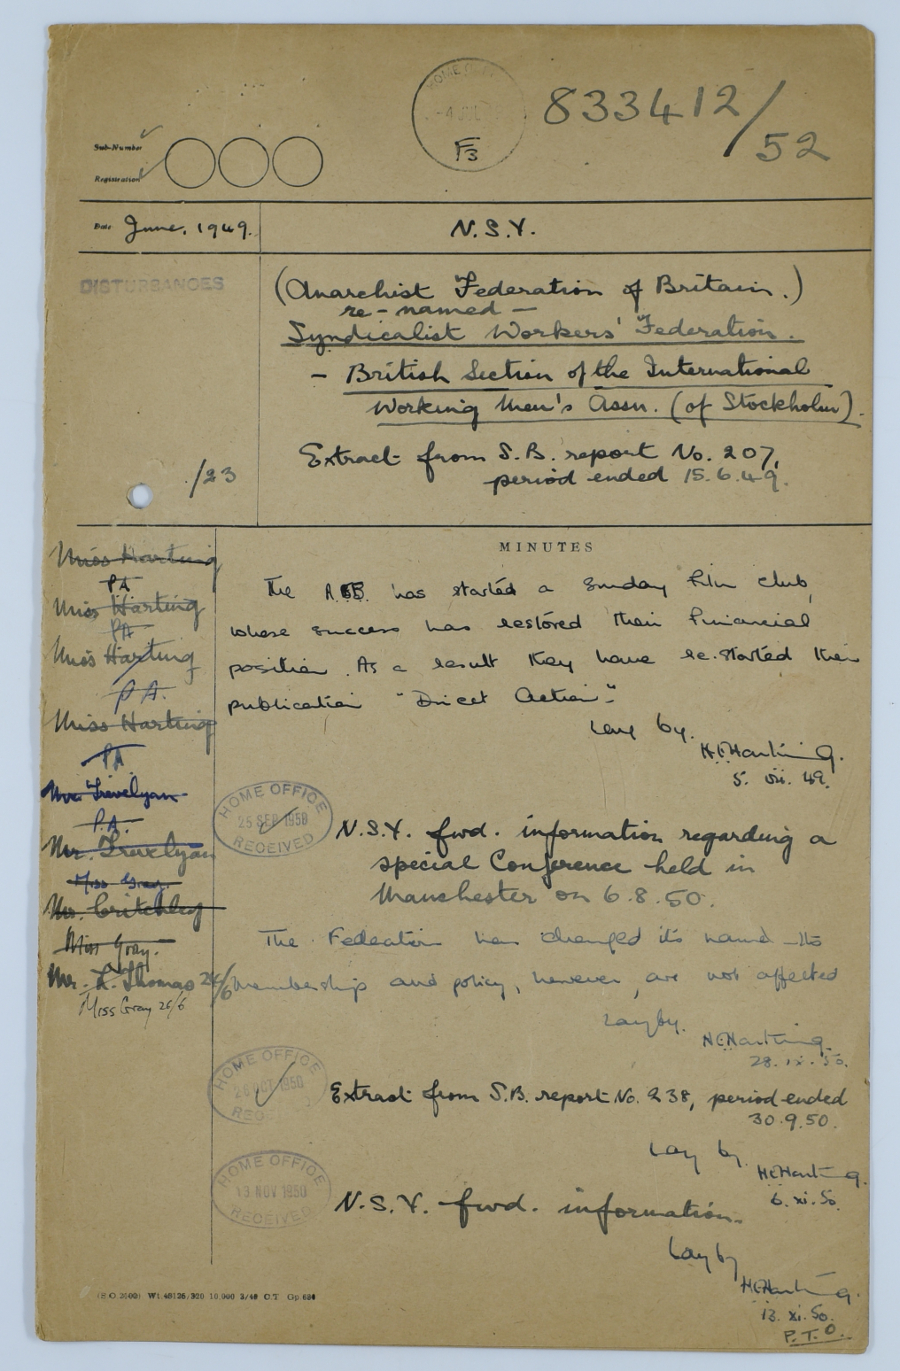 HOME OFFICE
-4 JUL
F3
833412/
52
Sub-Number
Registration
Date June, 1949.
N.S.Y.
DISTURBANCES
(Anarchist Federation of Britain.)
re-named -
Syndicalist Workers' Federation.
- British Section of the International
Working Men's Assn. (of Stockholm).
Extract from S.B. report No. 207,
period ended 15.6.49.
/23
MINUTES
Miss Harting
PA
Miss Harting
PA
Miss Harting
P.A.
Miss Harting
PA
Trevelyan
P.A.
Mr. Trevelyan
Miss Gray.
Critchley
Miss Gray.
Mr. L. Thomas 26/6
Miss Gray 26/6
The has started a Sunday film club,
whose success has restored their financial
position. As a result they have re-started their
publication "Direct Action".
Lay by.
H.C.Harting.
5. vii. 49.
HOME OFFICE
25 SEP 1950
RECEIVED
N.S.Y. fwd. information regarding a
special Conference held in
Manchester on 6.8.50.
The Federation has changed its name - its
membership and policy, however, are not affected
Lay by.
H.C.Harting.
28.ix.50.
HOME OFFICE
OCT 1950
Extract from S.B. report No. 238, period ended
30.9.50.
Lay by.
H.C.Harting.
6.xi.50.
HOME OFFICE
13 NOV 1950
RECEIVED
N.S.Y. fwd. information.
Lay by
H.C.Harting.
13.xi.50.
P.T.O.
10,000 2/48 C.T. Gp.684